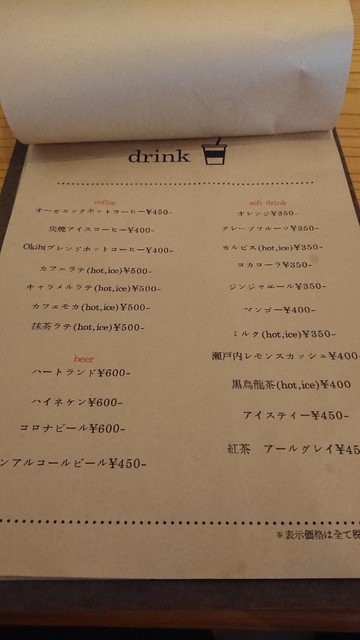 drink
coffee
オーガニックホットコーヒー¥450-
炭焼アイスコーヒー¥400-
Okihiブレンドホットコーヒー¥400-
カフェラテ(hot,ice)¥500-
キャラメルラテ(hot,ice)¥500-
カフェモカ(hot,ice)¥500-
抹茶ラテ(hot,ice)¥500-
beer
ハートランド¥600-
ハイネケン¥600-
コロナビール¥600-
ンアルコールビール¥450-
soft drink
オレンジ¥350-
グレープフルーツ¥350-
カルピス(hot,ice)¥350-
コカコーラ¥350-
ジンジャエール¥350-
マンゴー¥400-
ミルク(hot,ice)¥350-
瀬戸内レモンスカッシュ¥400-
黒烏龍茶(hot,ice)¥400
アイスティー¥450-
紅茶 アールグレイ¥45
※表示価格は全て税